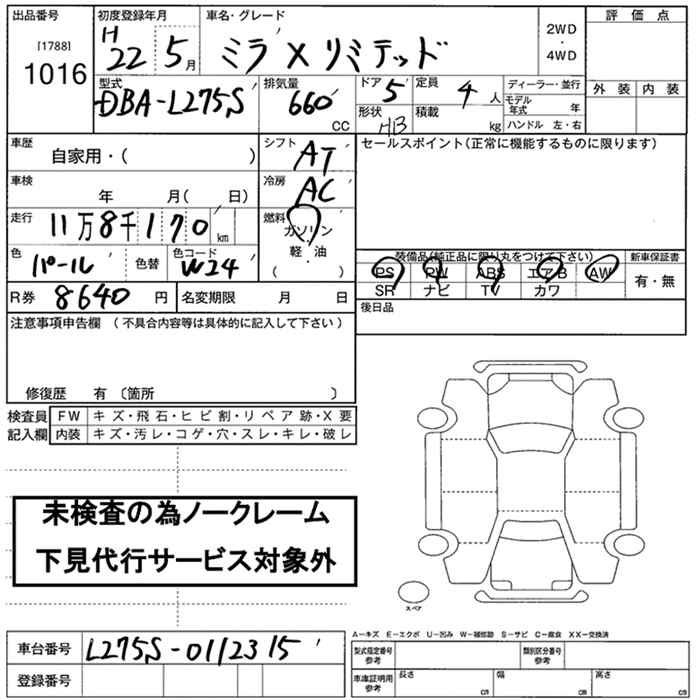 出品番号
[1788]
1016
初度登録年月
H
22 5月
車名・グレード
ミラ X リミテッド
2WD
・
4WD
評価点
外装 内装
型式
DBA-L275S
排気量
660
CC
ドア 5
形状 HB
定員 4 人
積載 kg
ディーラー・並行
モデル年式 年
ハンドル 左・右
車歴
自家用・( )
シフト AT
セールスポイント(正常に機能するものに限ります)
車検 年 月( 日)
冷房 AC
走行 11万8千170km
燃料
ガソリン
軽・油
( )
色 パール 色替
色コード W24
装備品(純正品に限り丸をつけて下さい)
PS PW ABS エアB AW
SR ナビ TV カワ
新車保証書
有・無
R券 8640 円
名変期限 月 日
後日品
注意事項申告欄 (不具合内容等は具体的に記入して下さい)
修復歴 有 〔箇所 〕
検査員
記入欄
FW キズ・飛石・ヒビ割・リペア跡・X要
内装 キズ・汚レ・コゲ・穴・スレ・キレ・破レ
未検査の為ノークレーム
下見代行サービス対象外
スペア
車台番号 L275S-0112315
登録番号
A-キズ E-エクボ U-凹み W-補修跡 S-サビ C-腐食 XX-交換済
型式指定番号
参考
類別区分番号
参考
車庫証明用
参考
長さ cm
幅 cm
高さ cm